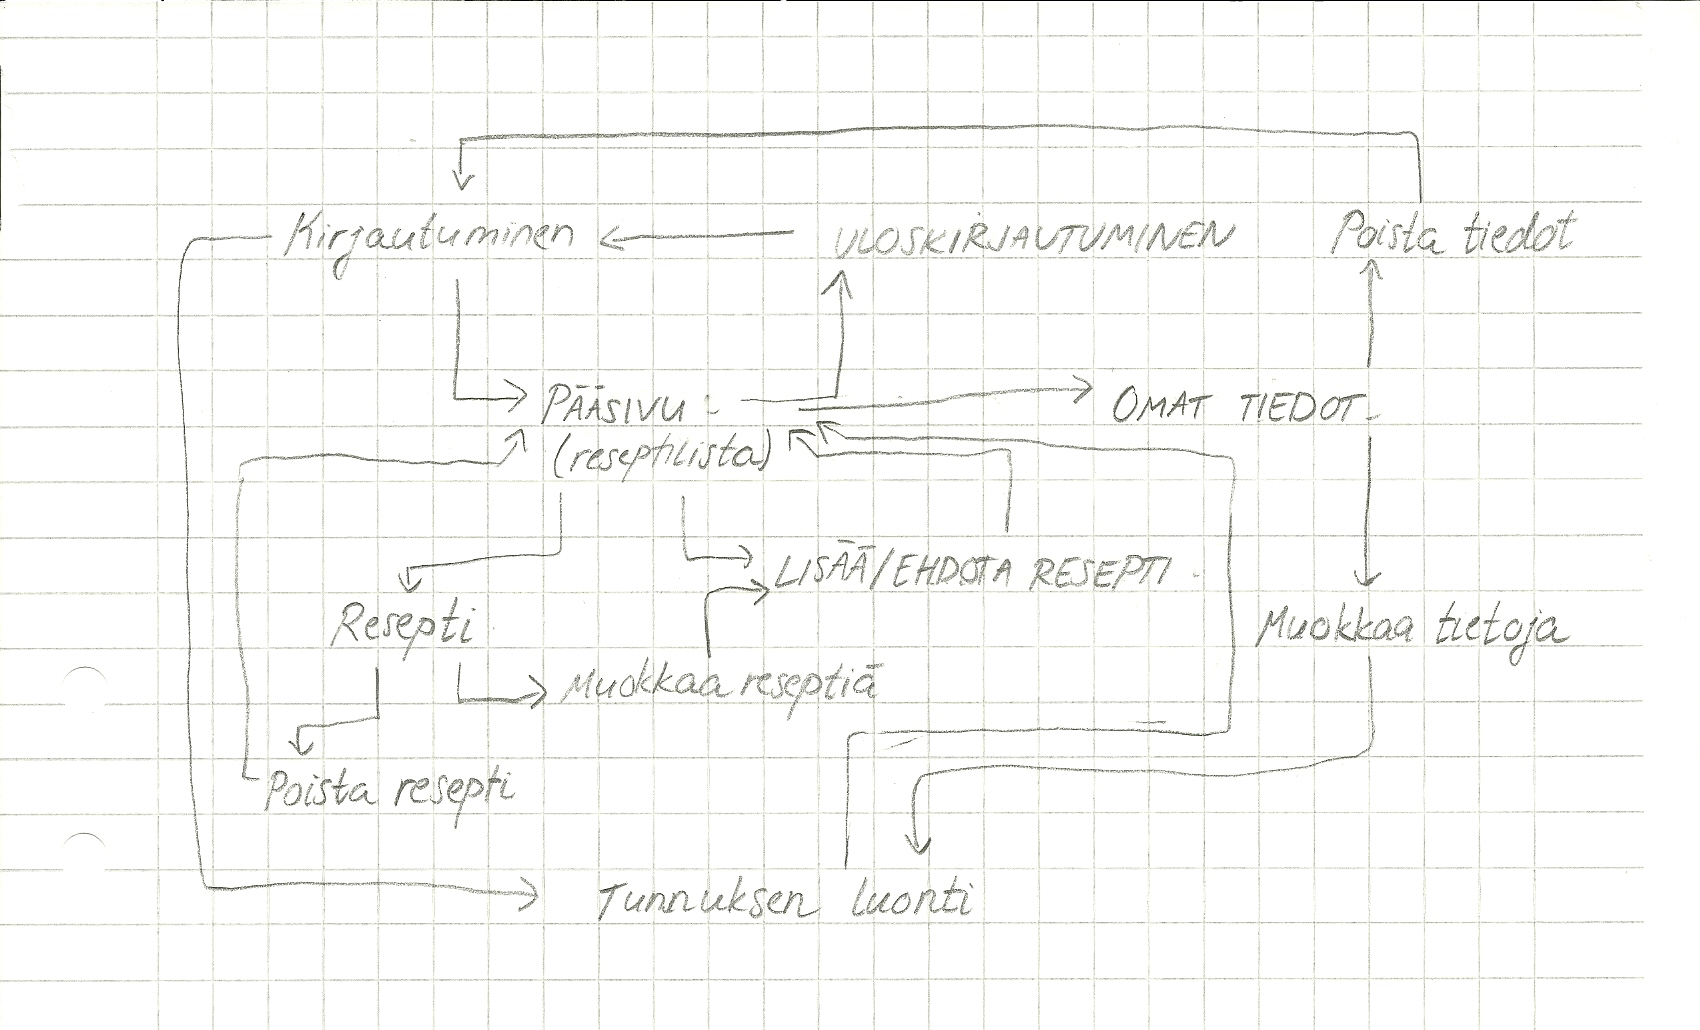 Kirjautuminen
ULOSKIRJAUTUMINEN
Poista tiedot
PÄÄSIVU
(reseptilista)
OMAT TIEDOT
LISÄÄ/EHDOTA RESEPTI
Resepti
Muokkaa tietoja
Muokkaa reseptiä
Poista resepti
Tunnuksen luonti